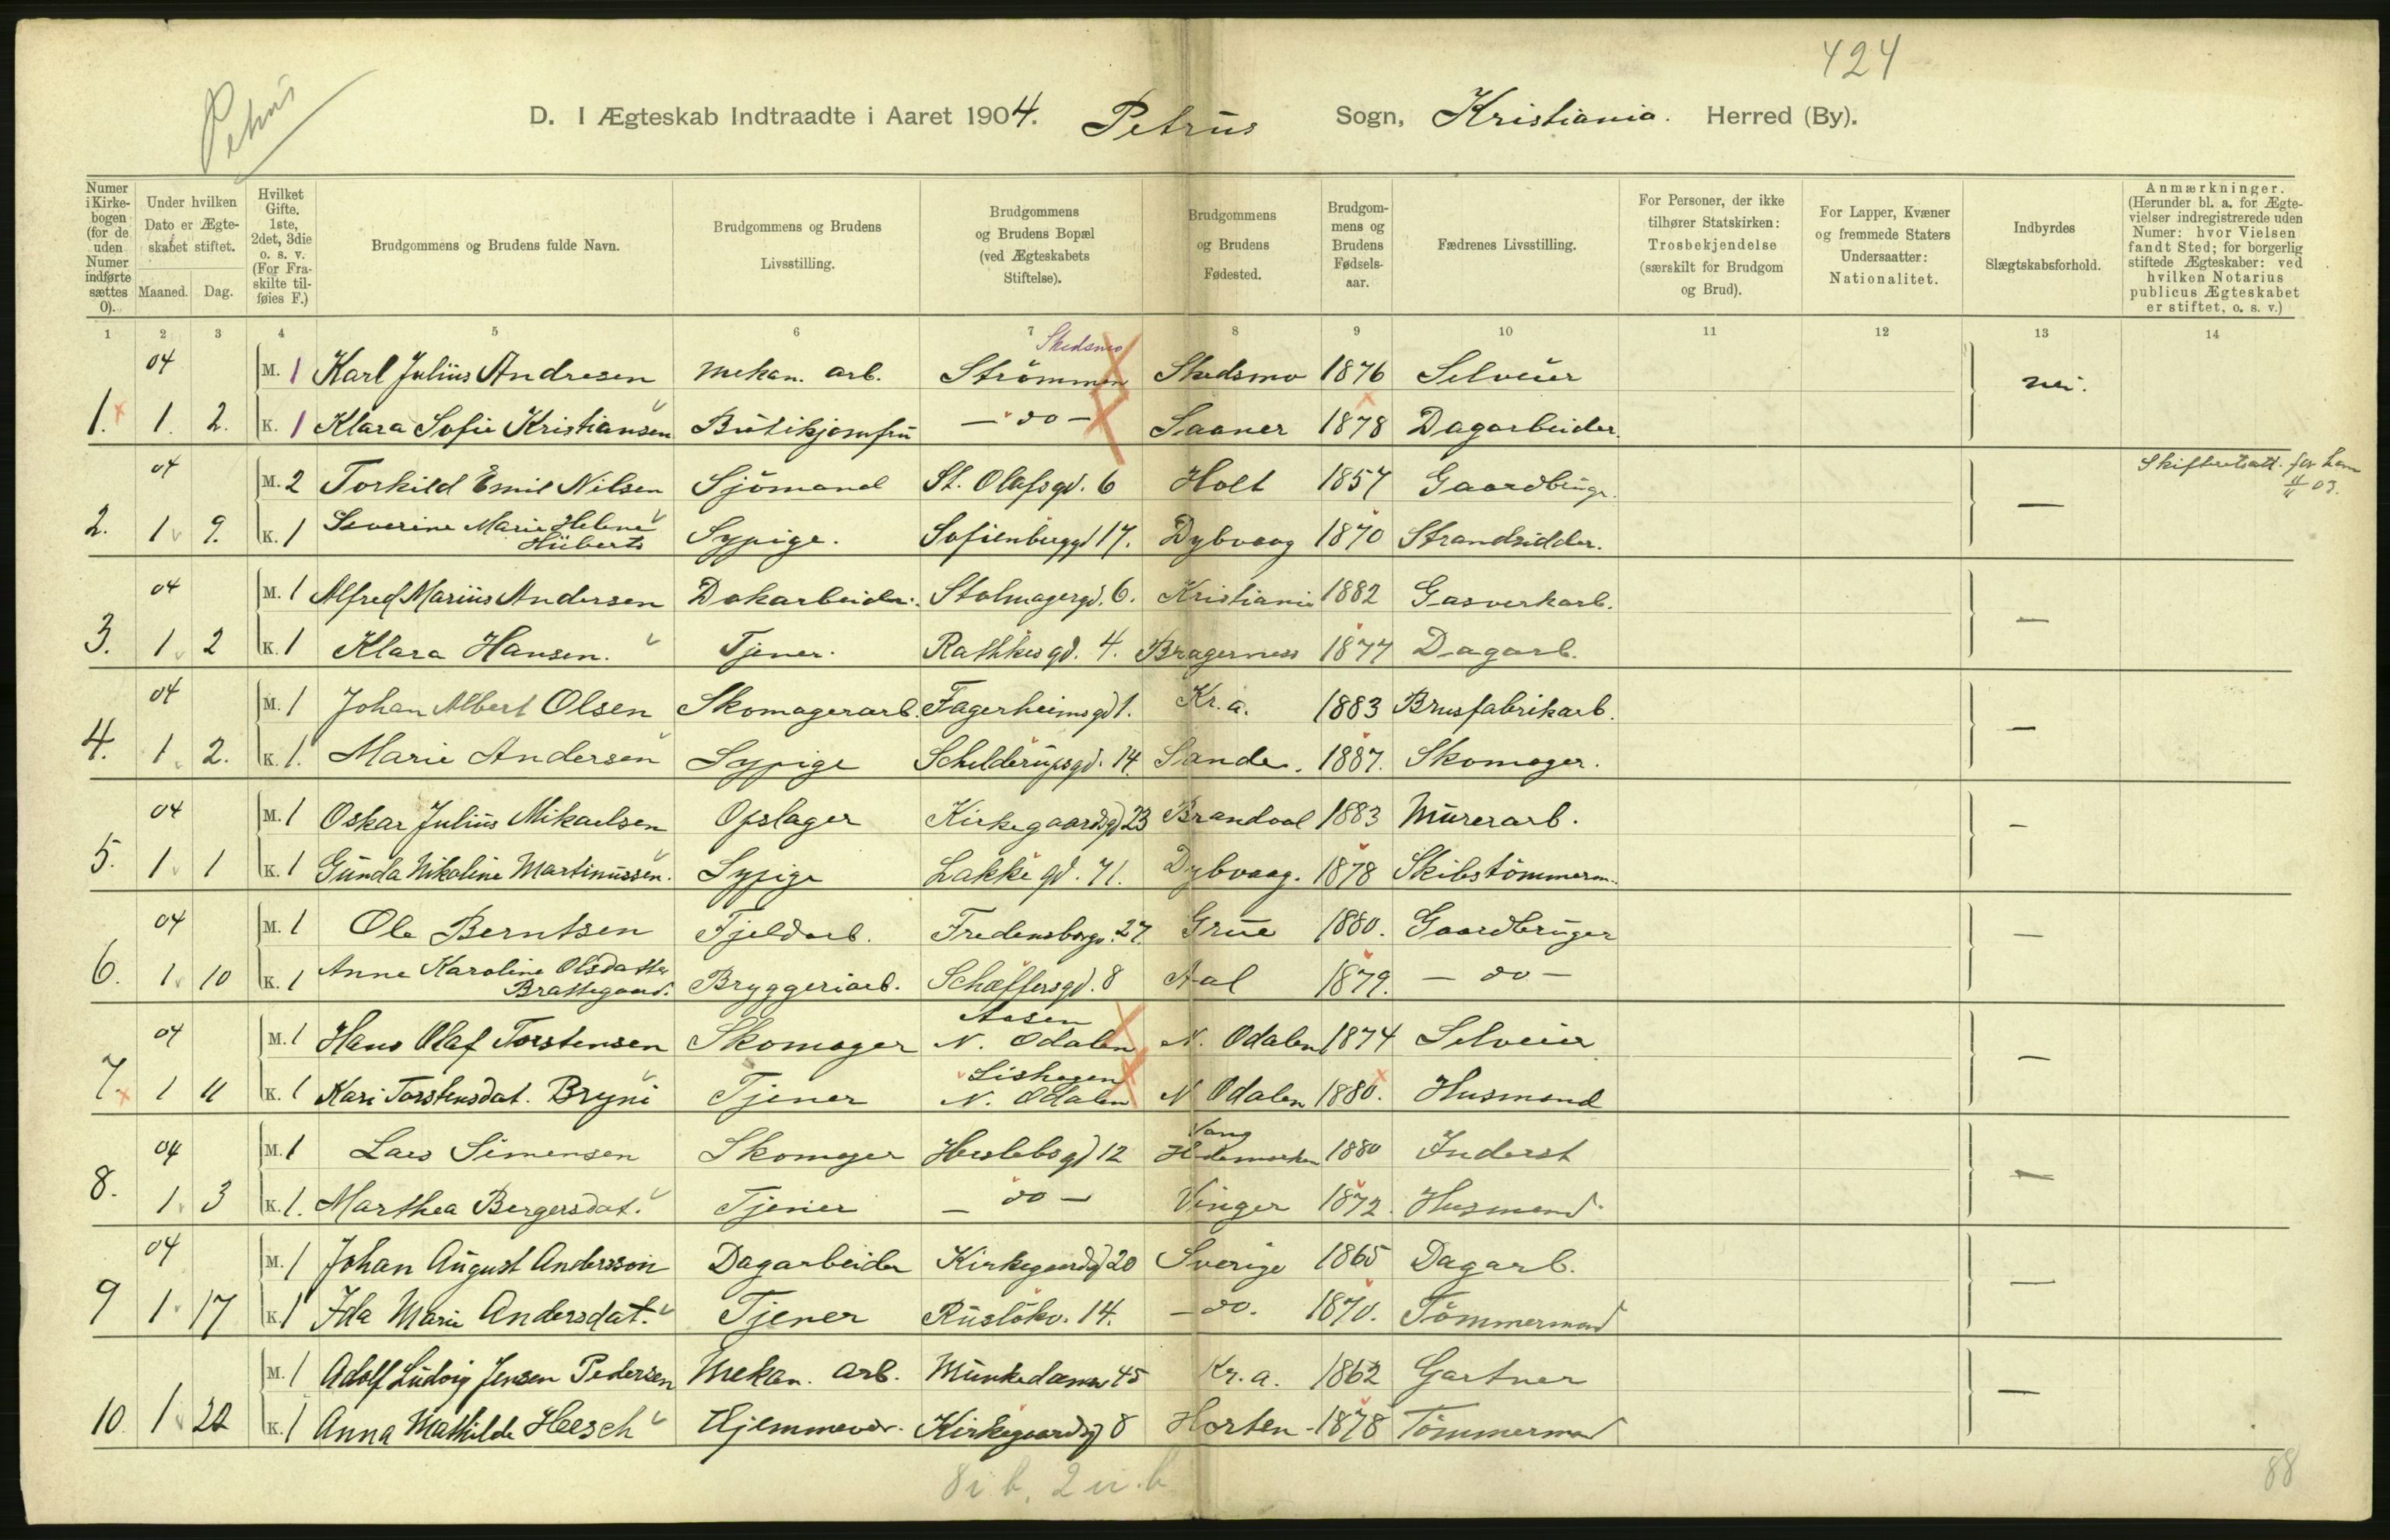 424
Petrus
D. I Ægteskab Indtraadte i Aaret 1904. Petrus Sogn, Kristiania. Herred (By).
Numer i Kirkebogen (for de uden Numer indførte sættes 0).
Under hvilken Dato er Ægteskabet stiftet.
Maaned. Dag.
Hvilket Gifte. 1ste, 2det, 3die o. s. v. (For Fraskilte tilføies F.)
Brudgommens og Brudens fulde Navn.
Brudgommens og Brudens Livsstilling.
Brudgommens og Brudens Bopæl (ved Ægteskabets Stiftelse).
Brudgommens og Brudens Fødested.
Brudgommens og Brudens Fødselsaar.
Fædrenes Livsstilling.
For Personer, der ikke tilhører Statskirken: Trosbekjendelse (særskilt for Brudgom og Brud).
For Lapper, Kvæner og fremmede Staters Undersaatter: Nationalitet.
Indbyrdes Slægtskabsforhold.
Anmærkninger. (Herunder bl. a. for Ægtevielser indregistrerede uden Numer: hvor Vielsen fandt Sted; for borgerlig stiftede Ægteskaber: ved hvilken Notarius publicus Ægteskabet er stiftet, o. s. v.)
1 2 3 4 5 6 7 8 9 10 11 12 13 14
Skedsmo
04 M. 1 Karl Julius Andresen mekan. arb. Strömmen Skedsmo 1876 Selveier nei.
1. 1. 2. K. 1 Klara Sofie Kristiansen Butikjomfru — do — Saaner 1878 Dagarbeider.
04 M. 2 Torkild Emil Nilsen Sjömand St. Olafsgd. 6 Holt 1857 Gaardbrugr. — Skifteattt. for ham
03.
2. 1 9. K. 1 Severine Marie Helene Huberts Sypige. Sofienberggd 17. Dybvaag 1870 Strandsidder.
04 M. 1 Alfred Marius Andersen Dokarbeider. Stolmagergd. 6. Kristiania 1882 Gasverkarb. —
3. 1 2 K. 1 Klara Hansen. Tjener. Rathkesgd. 4. Bragerness 1877 Dagarb.
04 M. 1 Johan Albert Olsen Skomagerarb. Fagerheimsgd 1. Kr.a. 1883 Brusfabrikarb. —
4. 1 2. K. 1. Marie Andersen Sypige Schelderupsgd. 14. Sande. 1887. Skomager.
04 M. 1 Oskar Julius Mikaelsen Opslager Kirkegaardsgd 23 Brandval 1883 Murerarb. —
5. 1 1 K. 1 Gunda Nikoline Martinussen. Sypige Lakkegd. 71. Dybvaag. 1878 Skibstömmerm.
04 M. 1 Ole Berntsen Fjeldarb. Fredensborgv. 27. Grue 1880. Gaardbruger —
6. 1 10 K. 1 Anne Karoline Olsdatter Brattegaard. Bryggeriarb. Schæffersgd. 8 Aal 1879. — do —
04 M. 1 Hans Olaf Torstensen Skomager Aasen N. Odalen N. Odalen 1874 Selveier —
7 1 11 K. 1 Kari Torstensdat. Bryni Tjener Lishagen N. Odalen N Odalen 1880. Husmand
04 M. 1 Lars Simensen Skomager Herslebsgd 12 Vang Hedemarken 1880 Inderst —
8. 1 3 K. 1. Marthea Bergersdat. Tjener — do — Vinger 1872. Husmand.
04 M. 1 Johan August Andersson Dagarbeider Kirkegaardsgd 20 Sverige 1865 Dagarb. —
9 1 17 K. 1 Ida Marie Andersdat. Tjener Rusløkv. 14. — do. 1870. Tömmermand
M. 1 Adolf Ludvig Jensen Pedersen Mekan. arb. Munkedamsv 45 Kr.a. 1862 Gartner —
10 1 22 K. 1 Anna Mathilde Heesch Hjemmevær. Kirkegaardsgd 8 Horten 1878 Tömmermand
8 i b, 2 u. b
88